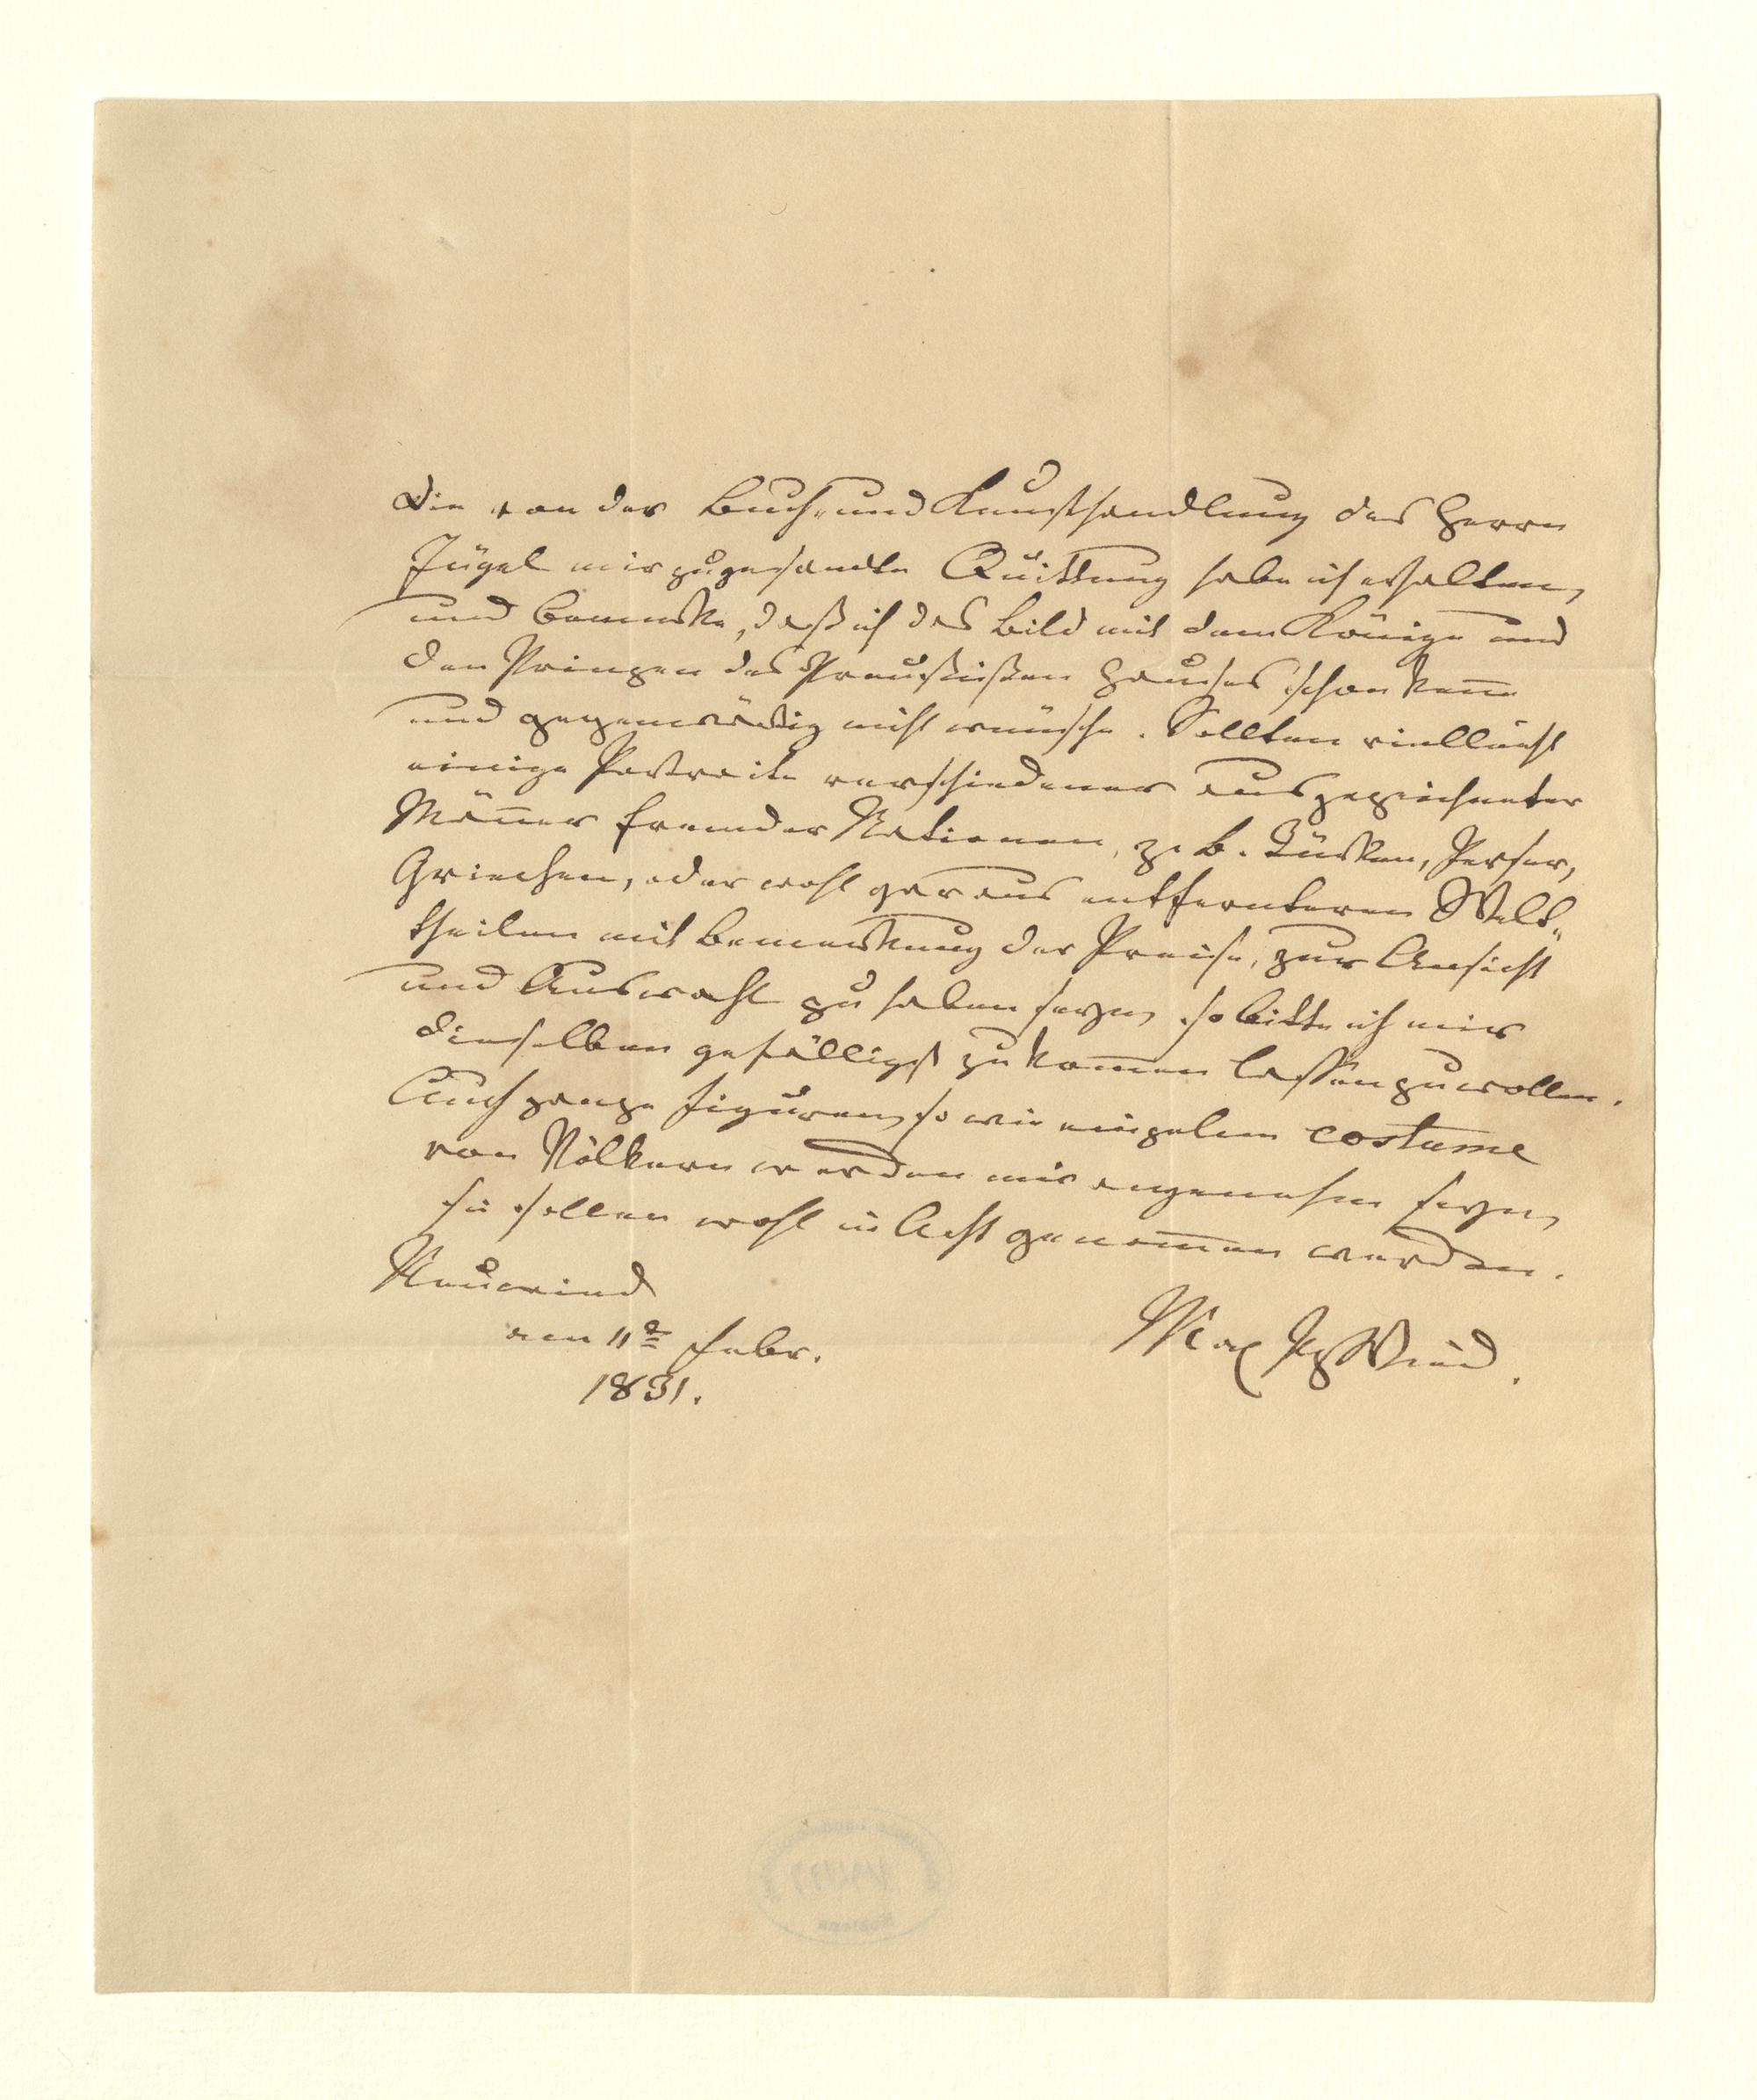 Die von der Buch- und Kunsthandlung des Herrn
Jügel mir zugesandte Quittung habe ich erhalten,
und bemerke, daß ich das Bild mit dem Könige und
den Prinzen des Preußischen Hauses schon keñe
und gegenwärtig nicht wünsche. Sollten vielleicht
einige Portraite verschiedener ausgezeichneter
Mäñer fremder Nationen, z. B. Türken, Perser,
Griechen, oder wohl gar aus entfernteren Welt-
theilen mit Bemerkung der Preise, zur Ansicht
und Auswahl zu haben seyn, so bitte ich mir
dieselben gefälligst zukom̃en lassen zu wollen.
Auch ganze Figuren, so wie einzelne costume
von Völkern werden mir angenehm seyn,
sie sollen wohl in Acht genom̃en werden.
Neuwied
am 11ᵗ Febr.
1831.
Max Pz Wied.